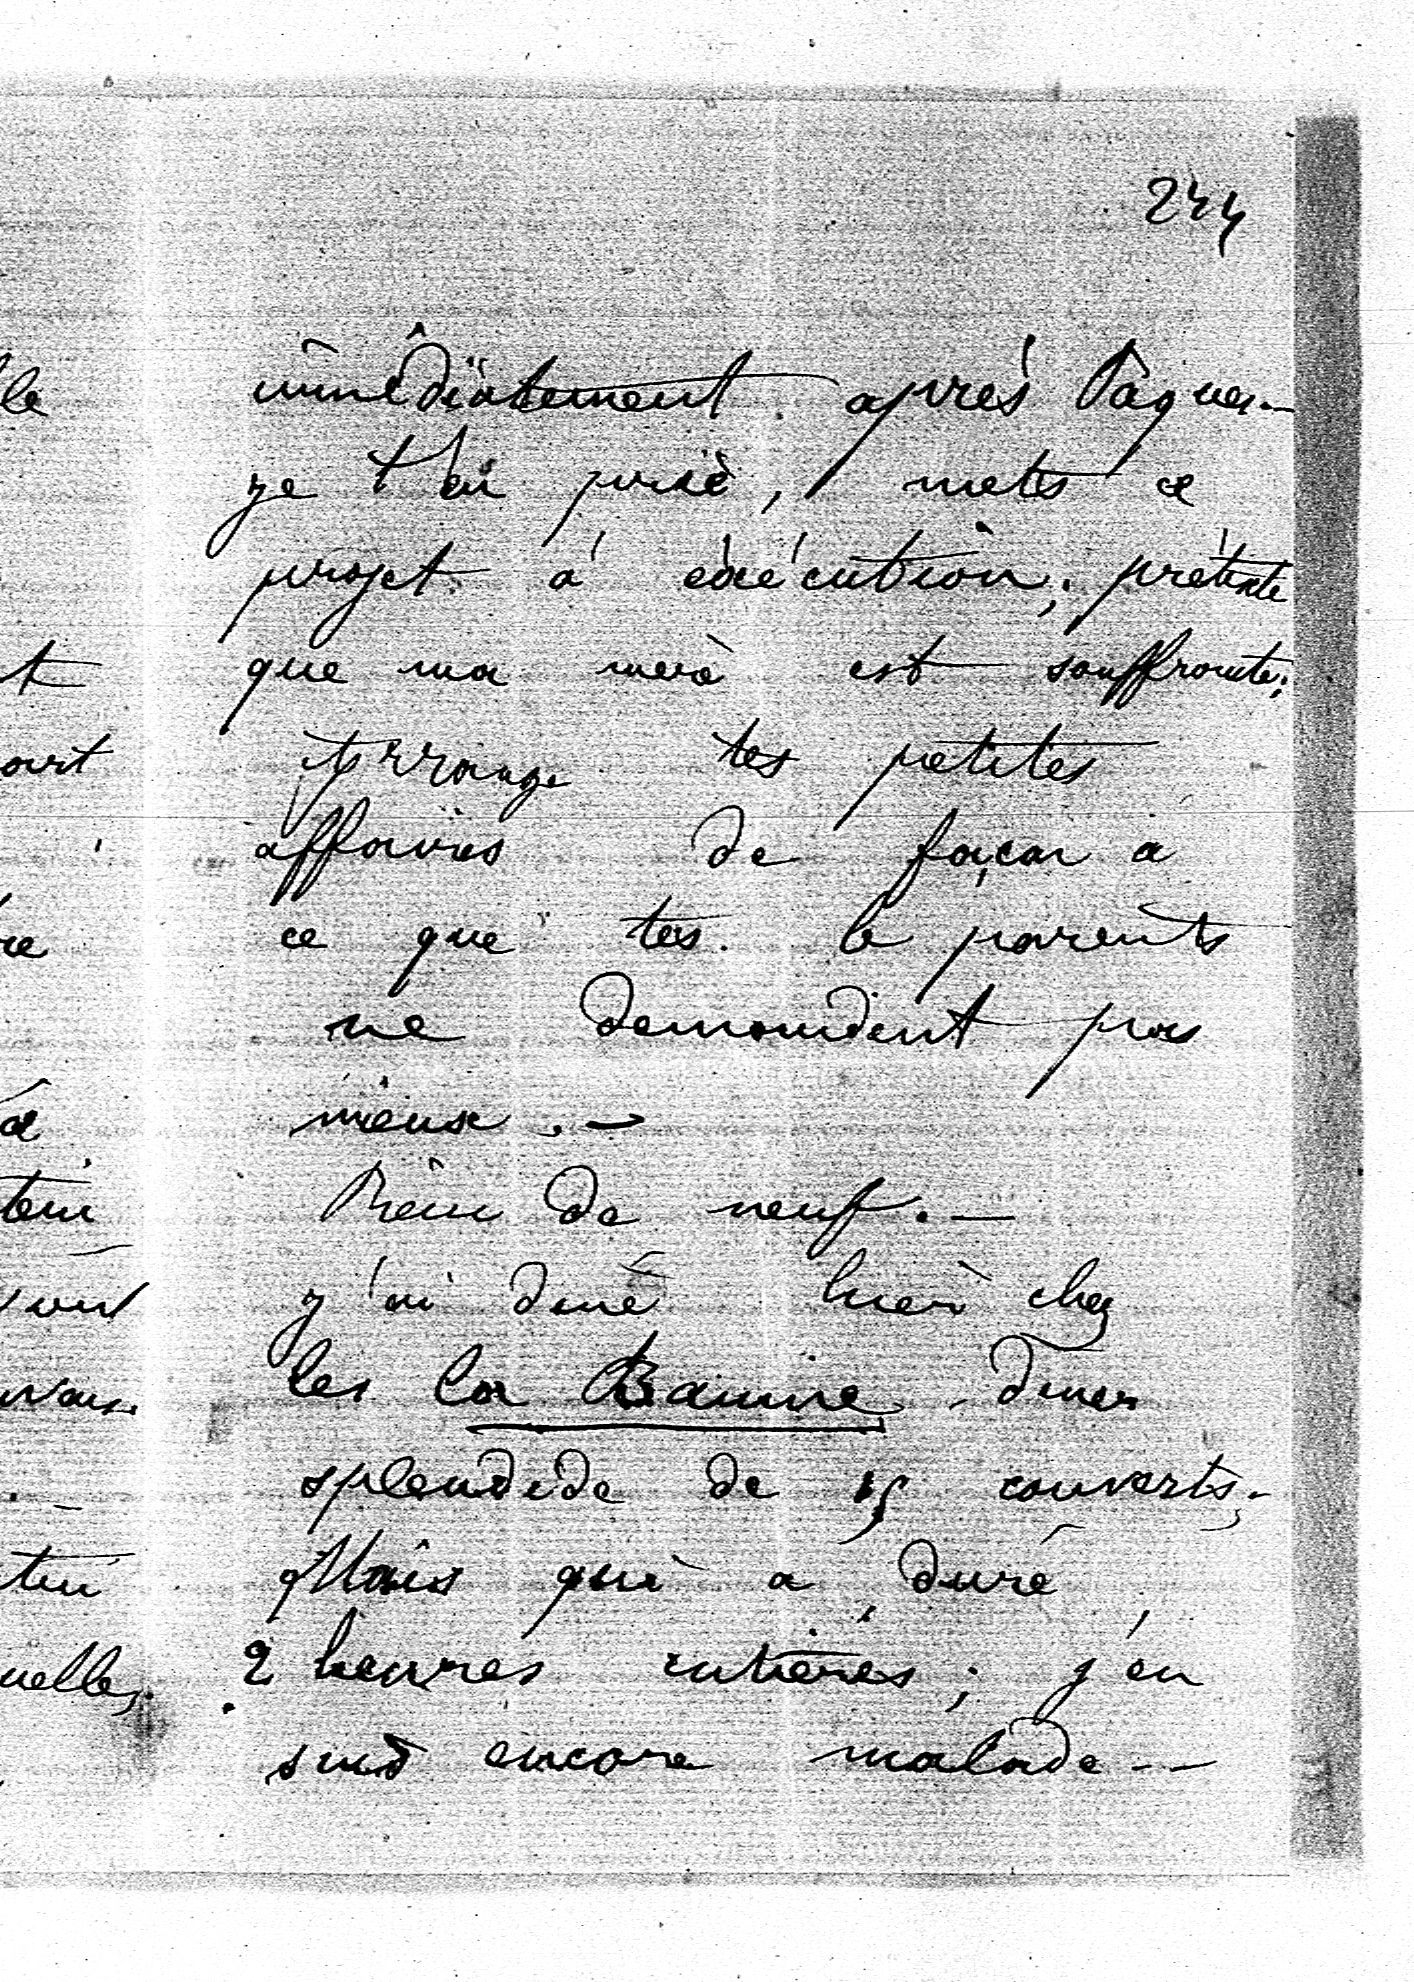 244
immédiatement après Pâques. —
je t'en prie, mets ce
projet à exécution; prétexte
que ma mère est souffrante;
arrange tes petites
affaires de façon à
ce que tes b parents
ne demandent pas
mieux. —
Rien de neuf. —
j'ai diné hier chez
les la Baume. diner
splendide de 15 couverts;
Mais qui a duré
2 heures entières; j'en
suis encore malade --